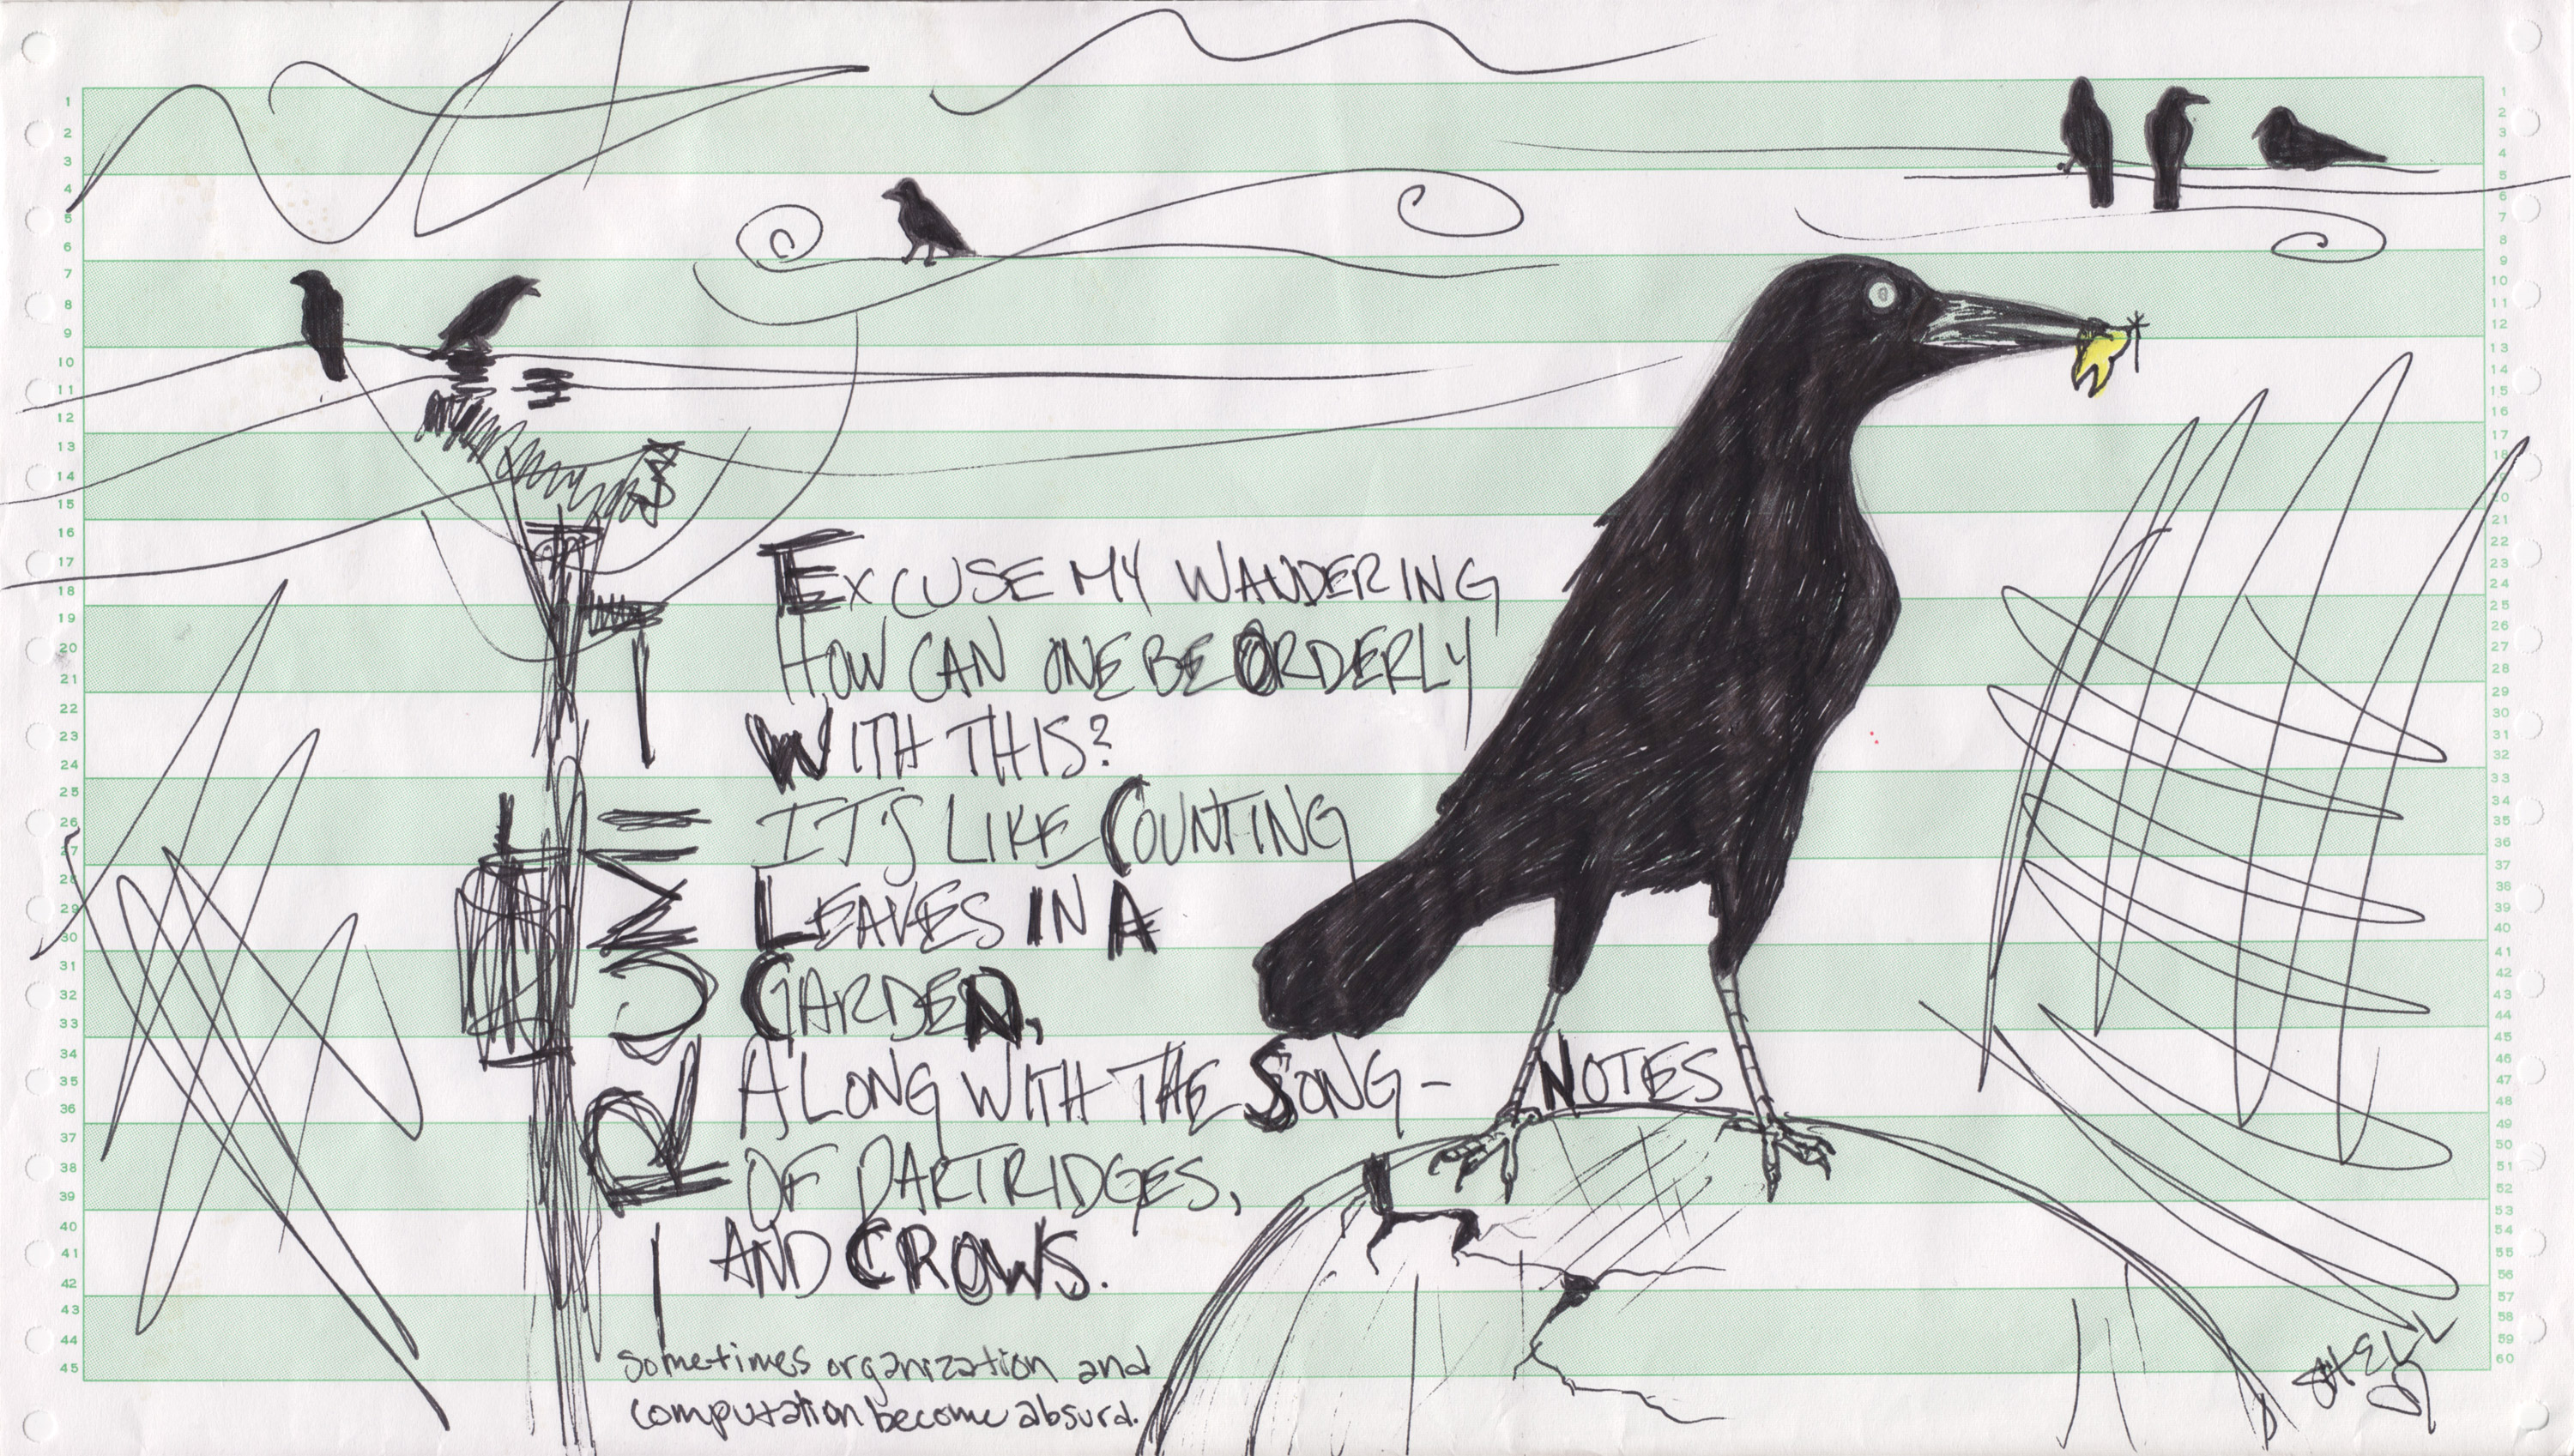 EXCUSE MY WANDERING
HOW CAN ONE BE ORDERLY
WITH THIS?
IT'S LIKE COUNTING
LEAVES IN A
GARDEN,
ALONG WITH THE SONG-NOTES
OF PARTRIDGES,
AND CROWS.
sometimes organization and
computation become absurd.
- RUMI -
SHELL
1
2
3
4
5
6
7
8
9
10
11
12
13
14
15
16
17
18
19
20
21
22
23
24
25
26
27
28
29
30
31
32
33
34
35
36
37
38
39
40
41
42
43
44
45
1
2
3
4
5
6
7
8
9
10
11
12
13
14
15
16
17
18
20
21
22
23
24
25
26
27
28
29
30
31
32
33
34
35
36
37
38
39
40
41
42
43
44
45
46
47
48
49
50
51
52
53
54
55
56
57
58
59
60